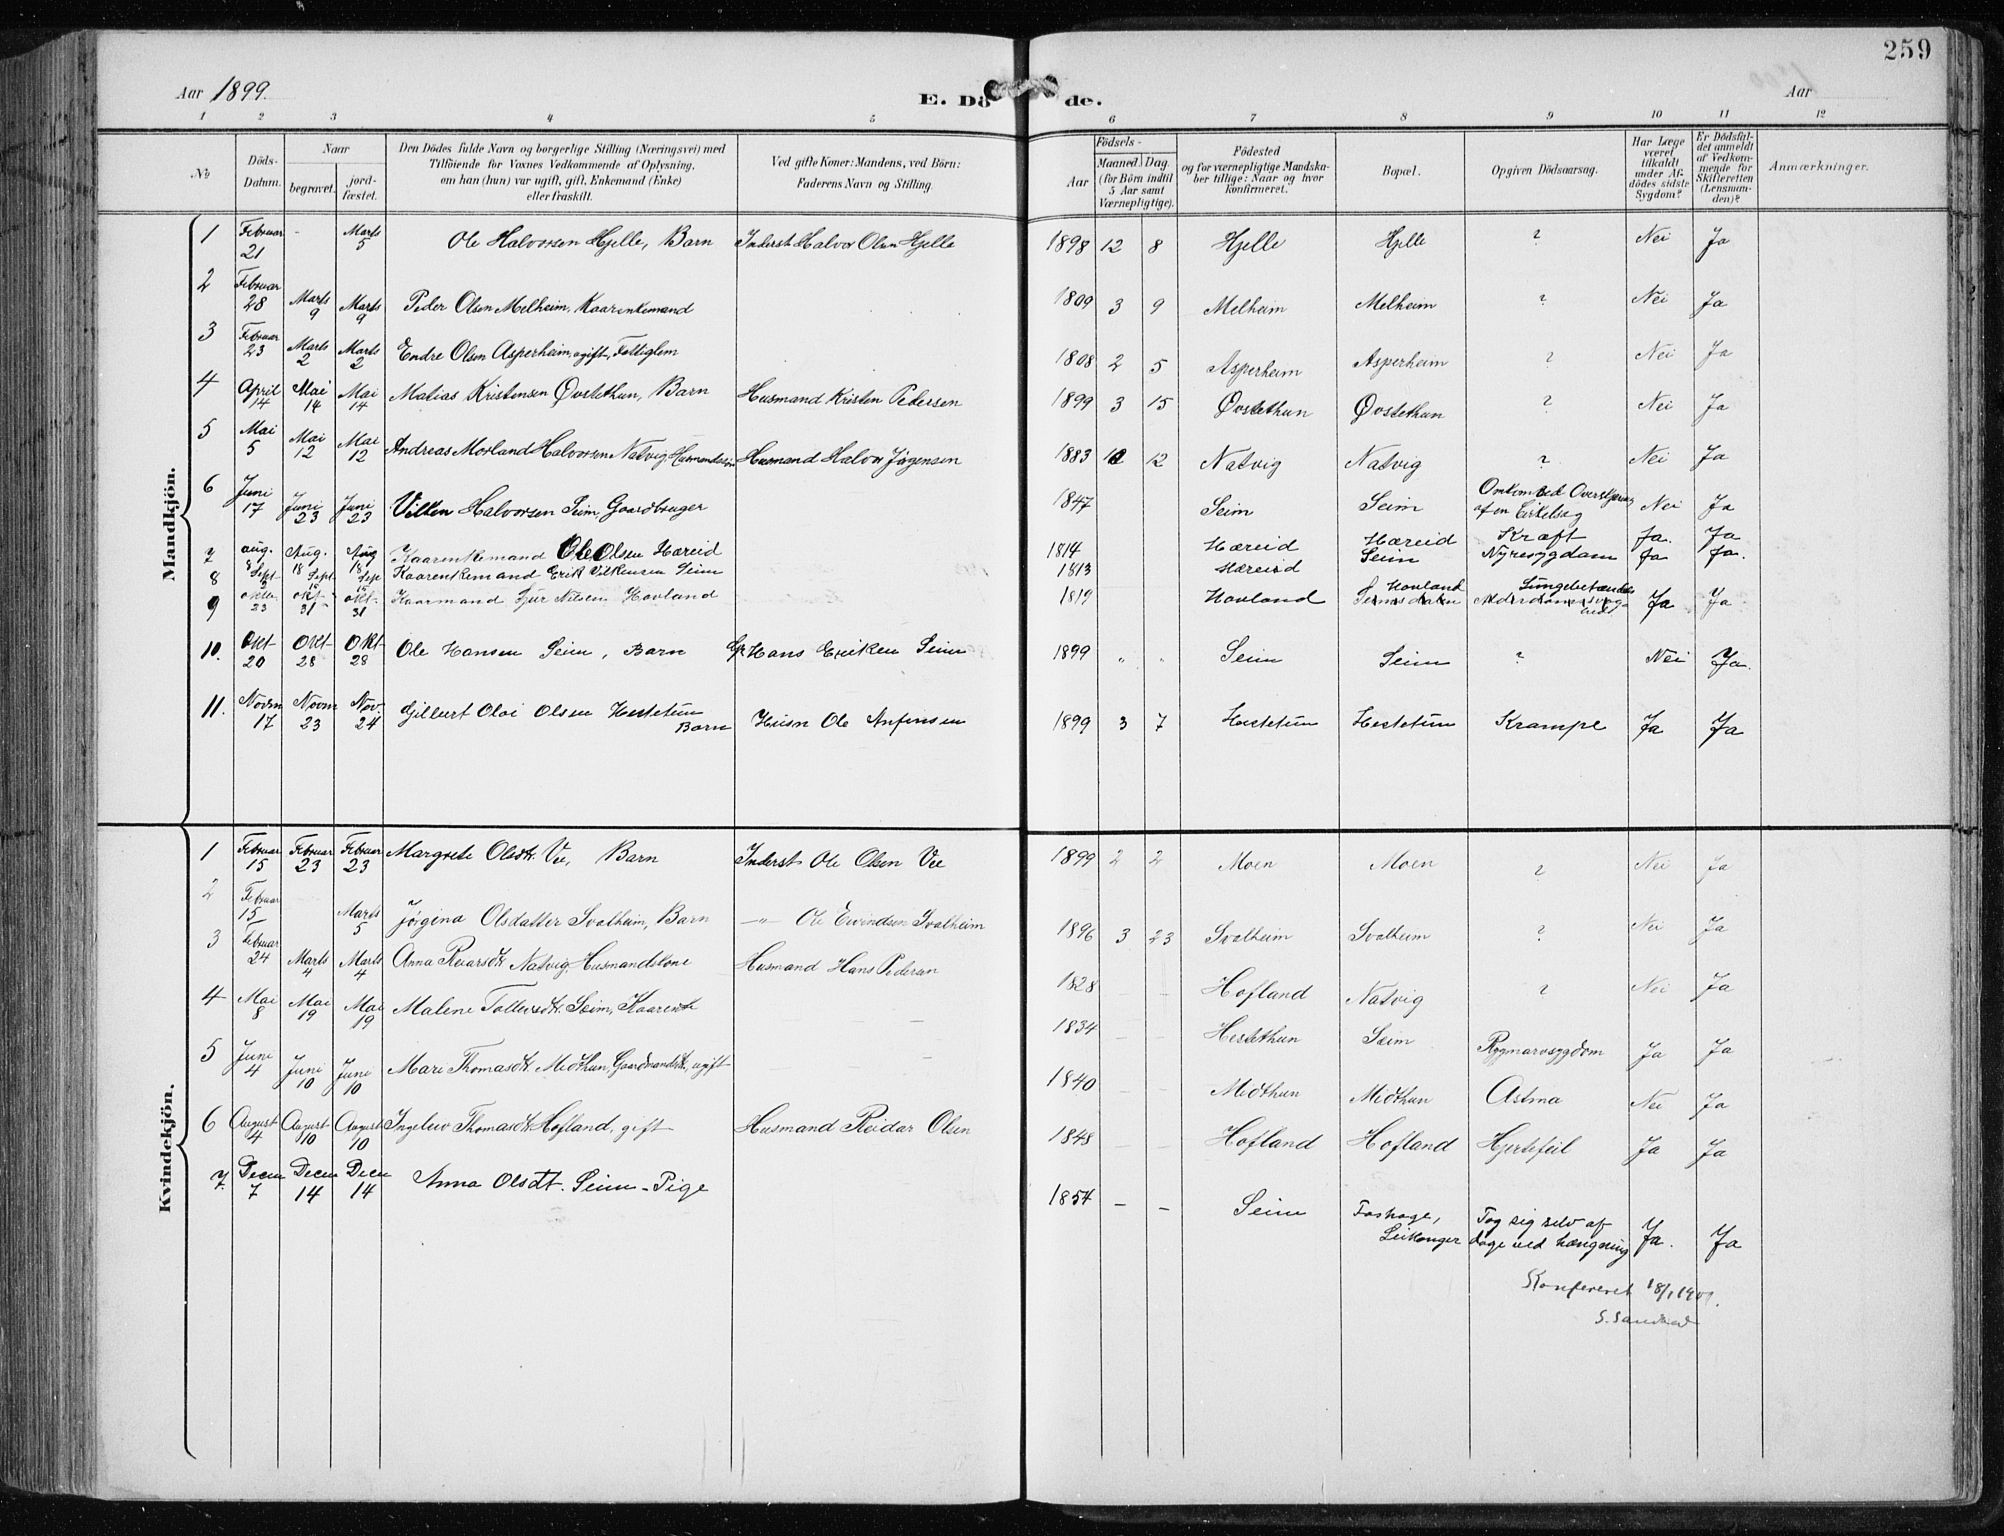 259
Aar 1899.
E. Dö de.
Aar
1 2 3 4 5 6 7 8 9 10 11 12
No
Döds-Datum.
Naar
begravet.
jord-fæstet.
Den Dödes fulde Navn og borgerlige Stilling (Næringsvei) med
Tilföiende for Voxnes Vedkommende af Oplysning,
om han (hun) var ugift, gift, Enkemand (Enke)
eller fraskilt.
Ved gifte Koner: Mandens, ved Börn:
Faderens Navn og Stilling.
Födsels-
Aar
Maaned. Dag.
(for Börn indtil
5 Aar samt
Værnepligtige).
Födested
og for værnepligtige Mandska-
ber tillige: Naar og hvor
konfirmeret.
Bopæl.
Opgiven Dödsaarsag.
Har Læge
været
tilkaldt
under Af-
dödes sidste
Sygdom?
Er Dödsfal-
det anmeldt
af Vedkom-
mende for
Skifteretten
(Lensman-
den)?
Anmærkninger.
Mandkjön.
1 Februar 21 - Marts 5 Ole Halvorsen Hjelle, Barn Inderst Halvor Olsen Hjelle 1898 12 8 Hjelle Hjelle ? Nei Ja
2 Februar 28 Marts 9 Marts 9 Peder Olsen Melheim, Kaarenkemand 1809 3 9 Melheim Melheim ? Nei Ja
3 Februar 23 Marts 2 Marts 2 Endre Olsen Asperheim, ugift, Fattiglem 1808 2 5 Asperheim Asperheim ? Nei Ja
4 April 14 Mai 14 Mai 14 Matias Kristensen Øvstethun, Barn Husmand Kristen Pedersen 1899 3 15 Øvstethun Øvstethun ? Nei Ja
5 Mai 5 Mai 12 Mai 12 Andreas Morland Halvorsen Natvig, Husmandssøn Husmand Halvor Jørgensen 1883 12 Natvig Natvig ? Nei Ja
6 Juni 17 Juni 23 Juni 23 Villen Halvorsen Seim, Gaardbruger 1847 Seim Seim Omkom ved Overskjæring af en Cirkelsag Nei Ja
7 Aug. 8 Aug. 18 Aug 18 Kaarenkemand Ole Olsen Hæreid 1814 Hæreid Hæreid Kræft Ja. Ja
8 Sept 5 Sept 15 Sep 15 Kaarenkemand Erik Vilkensen Seim 1813 Hæreid Seim Nyresygdom Ja Ja.
9 Okto 23 okt 31 okt 31 Kaarmand Sjur Nilsen Hovland 1819 Hovland Hovland Lungebetændelse Ja Ja
10. Okt 20 Okt 28 Okt 28 Ole Hansen Seim, Barn Hans Eriksen Seim 1899 „ „ Seim Seim ? Nei Ja.
11. Novm 17 Novm 23 Nov. 24 Gilbert Olai Olsen Hestetun Barn Husm Ole Anfinsen 1899 3 7 Hestetun Hestetun Krampe Ja Ja
Kvindekjön.
1 Februar 15 Februar 23 Februar 23 Margrete Olsdtr. Vee, Barn Inderst Ole Olsen Vee 1899 2 2 Moen Moen ? Nei Ja
2 Februar 15 Marts 5 Jørgina Olsdatter Svalheim, Barn -„- Ole Eivindsen Svalheim 1896 3 23 Svalheim Svalheim ? Nei Ja
3 Februar 24 Marts 4 Marts 4 Anna Reiarsdtr Natvig, Husmandskone Husmand Hans Pedersen 1828 - - Hofland Natvig ? Nei Ja
4 Mai 8 Mai 19 Mai 19 Malene Tollevsdtr. Seim, Kaarenke - - 1834 - - Hestethun Seim Rygmarvsygdom Ja Ja
5 Juni 4 Juni 10 Juni 10 Mari Thomasdtr. Midthun, Gaardmandsdtr., ugift - 1840 - - Midthun Midthun Astma Nei Ja
6 August 4 August 10 August 10 Ingeleiv Thomasdtr. Hofland, gift Husmand Reidar Olsen 1848 - - Hofland Hofland Hjertefeil Ja Ja
7. Decem 7 Decem 14 Decem 14 Anna Olsdt. Seim - Pige 1854 - - Seim Foshage, Leikanger Tog sig selv af dage ved hængning Ja. Ja
Konfereret 18/1 1900.